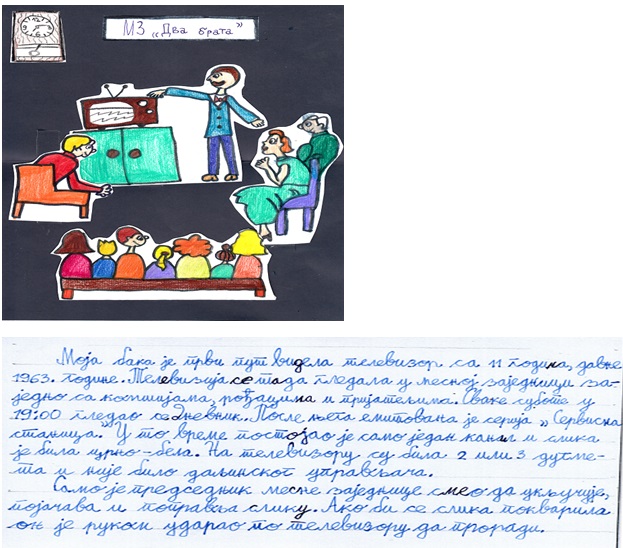 МЗ „Два брата”
Моја бака је први пут видела телевизор са 11 година, давне
1963. године. Телевизија се тада гледала у месној заједници за-
једно са комшијама, рођацима и пријатељима. Сваке суботе у
19:00 гледао се Дневник. После њега емитована је серија „Сервисна
станица.” У то време постојао је само један канал и слика
је била црно-бела. На телевизору су била 2 или 3 дугме-
та и није било даљинског управљача.
Само је председник месне заједнице смео да укључује,
појачава и поправља слику. Ако би се слика покварила
он је руком ударао по телевизору да проради.